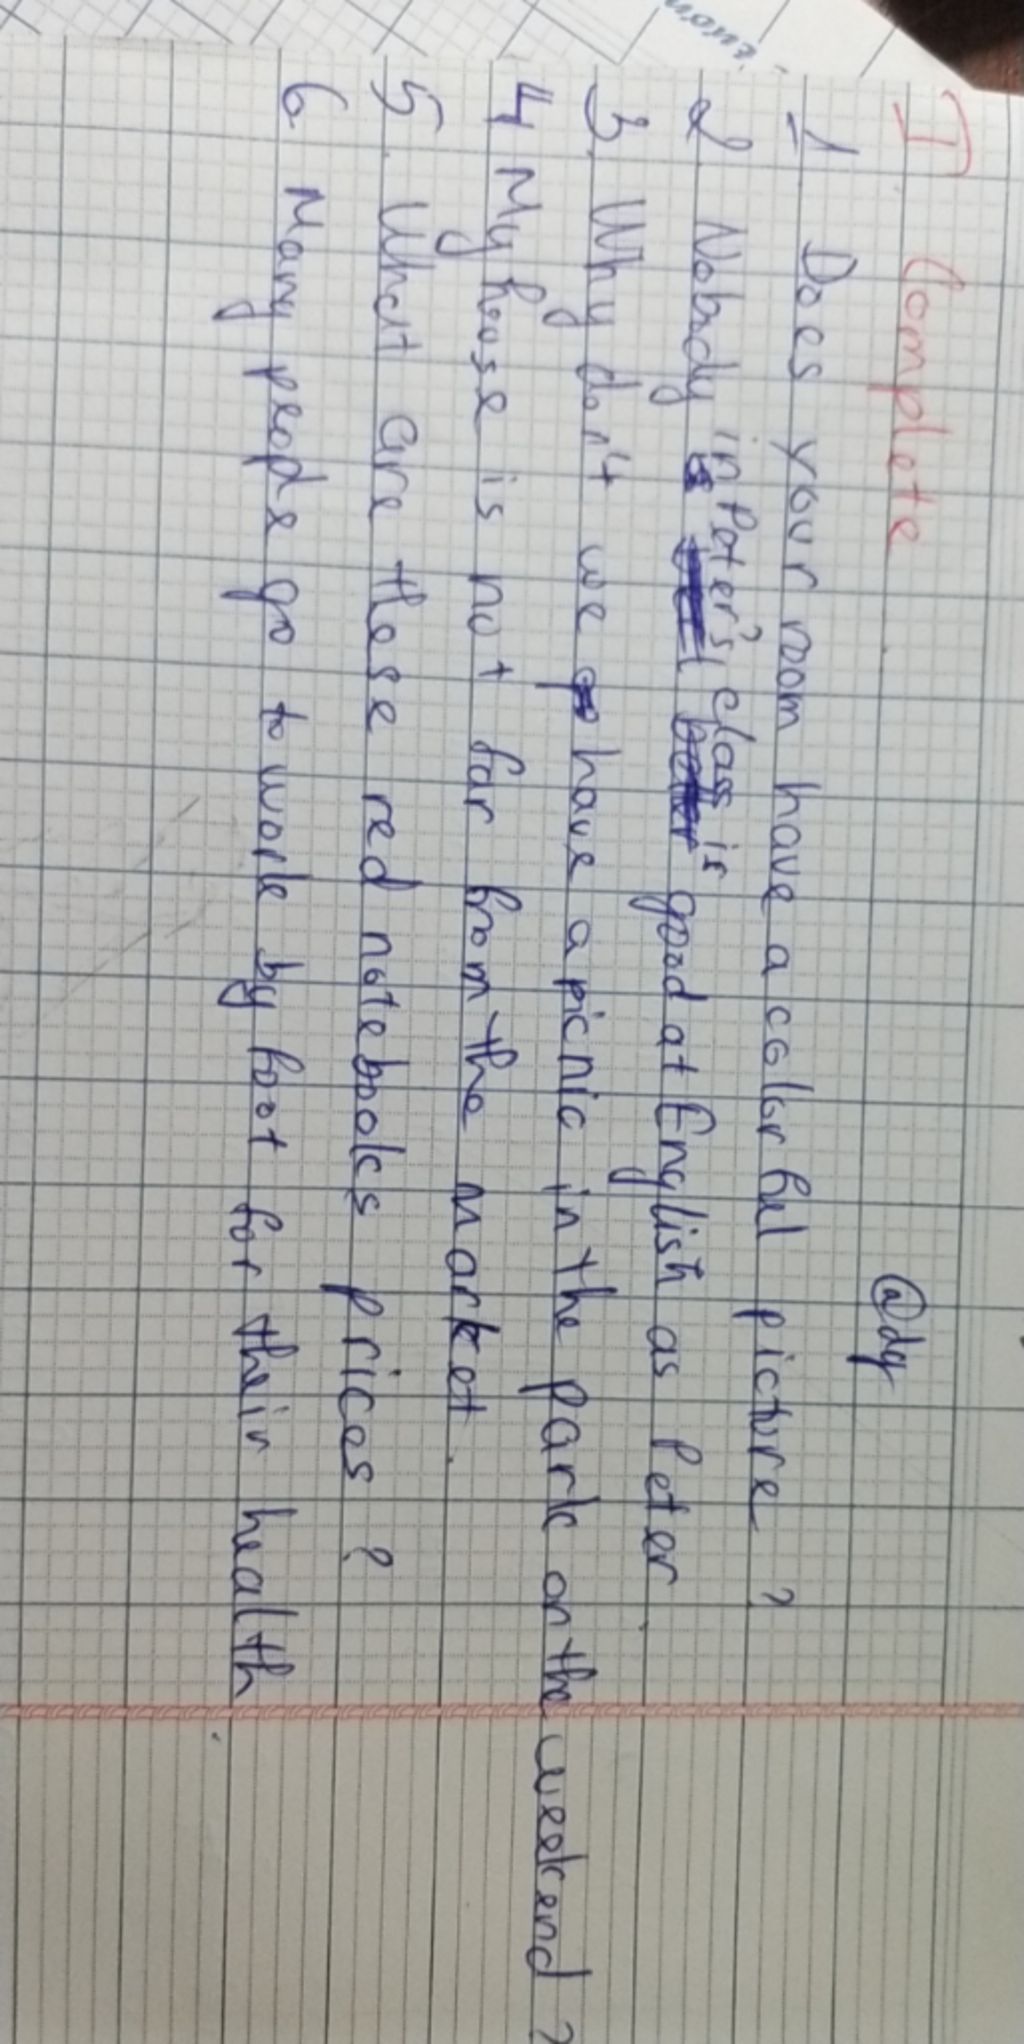 I Complete
@dy
1 Does your room have a colorful picture ?
2 Nobody in Peter's class is good at English as Peter.
3. Why don't we have a picnic in the park on the weekend ?
4 My house is not far from the market.
5. What are these red notebooks prices ?
6. Many people go to work by foot for their health.